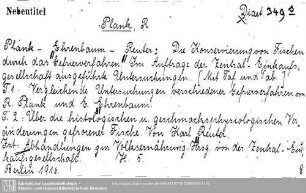 Nebentitel
Plank, R.
Plank - Ehrenbaum - Reuter: Die Konservierung von Fischen
durch das Gefrierverfahren. Im Auftrage der Zentral-Einkaufs-
gesellschaft ausgeführte Untersuchungen. [Mit Taf. und Tab.]
T. 1. Vergleichende Untersuchungen verschiedener Gefrierverfahren von
R. Plank und E. Ehrenbaum.
T. 2. Über die histologischen u. geschmacksphysiologischen Ver-
änderungen gefrorener Fische. Von Karl Reuter.
Abhandlungen zur Volksernährung. Hrsg. von der Zentral-Ein-
kaufsgesellschaft. H. 5.
Berlin 1916.